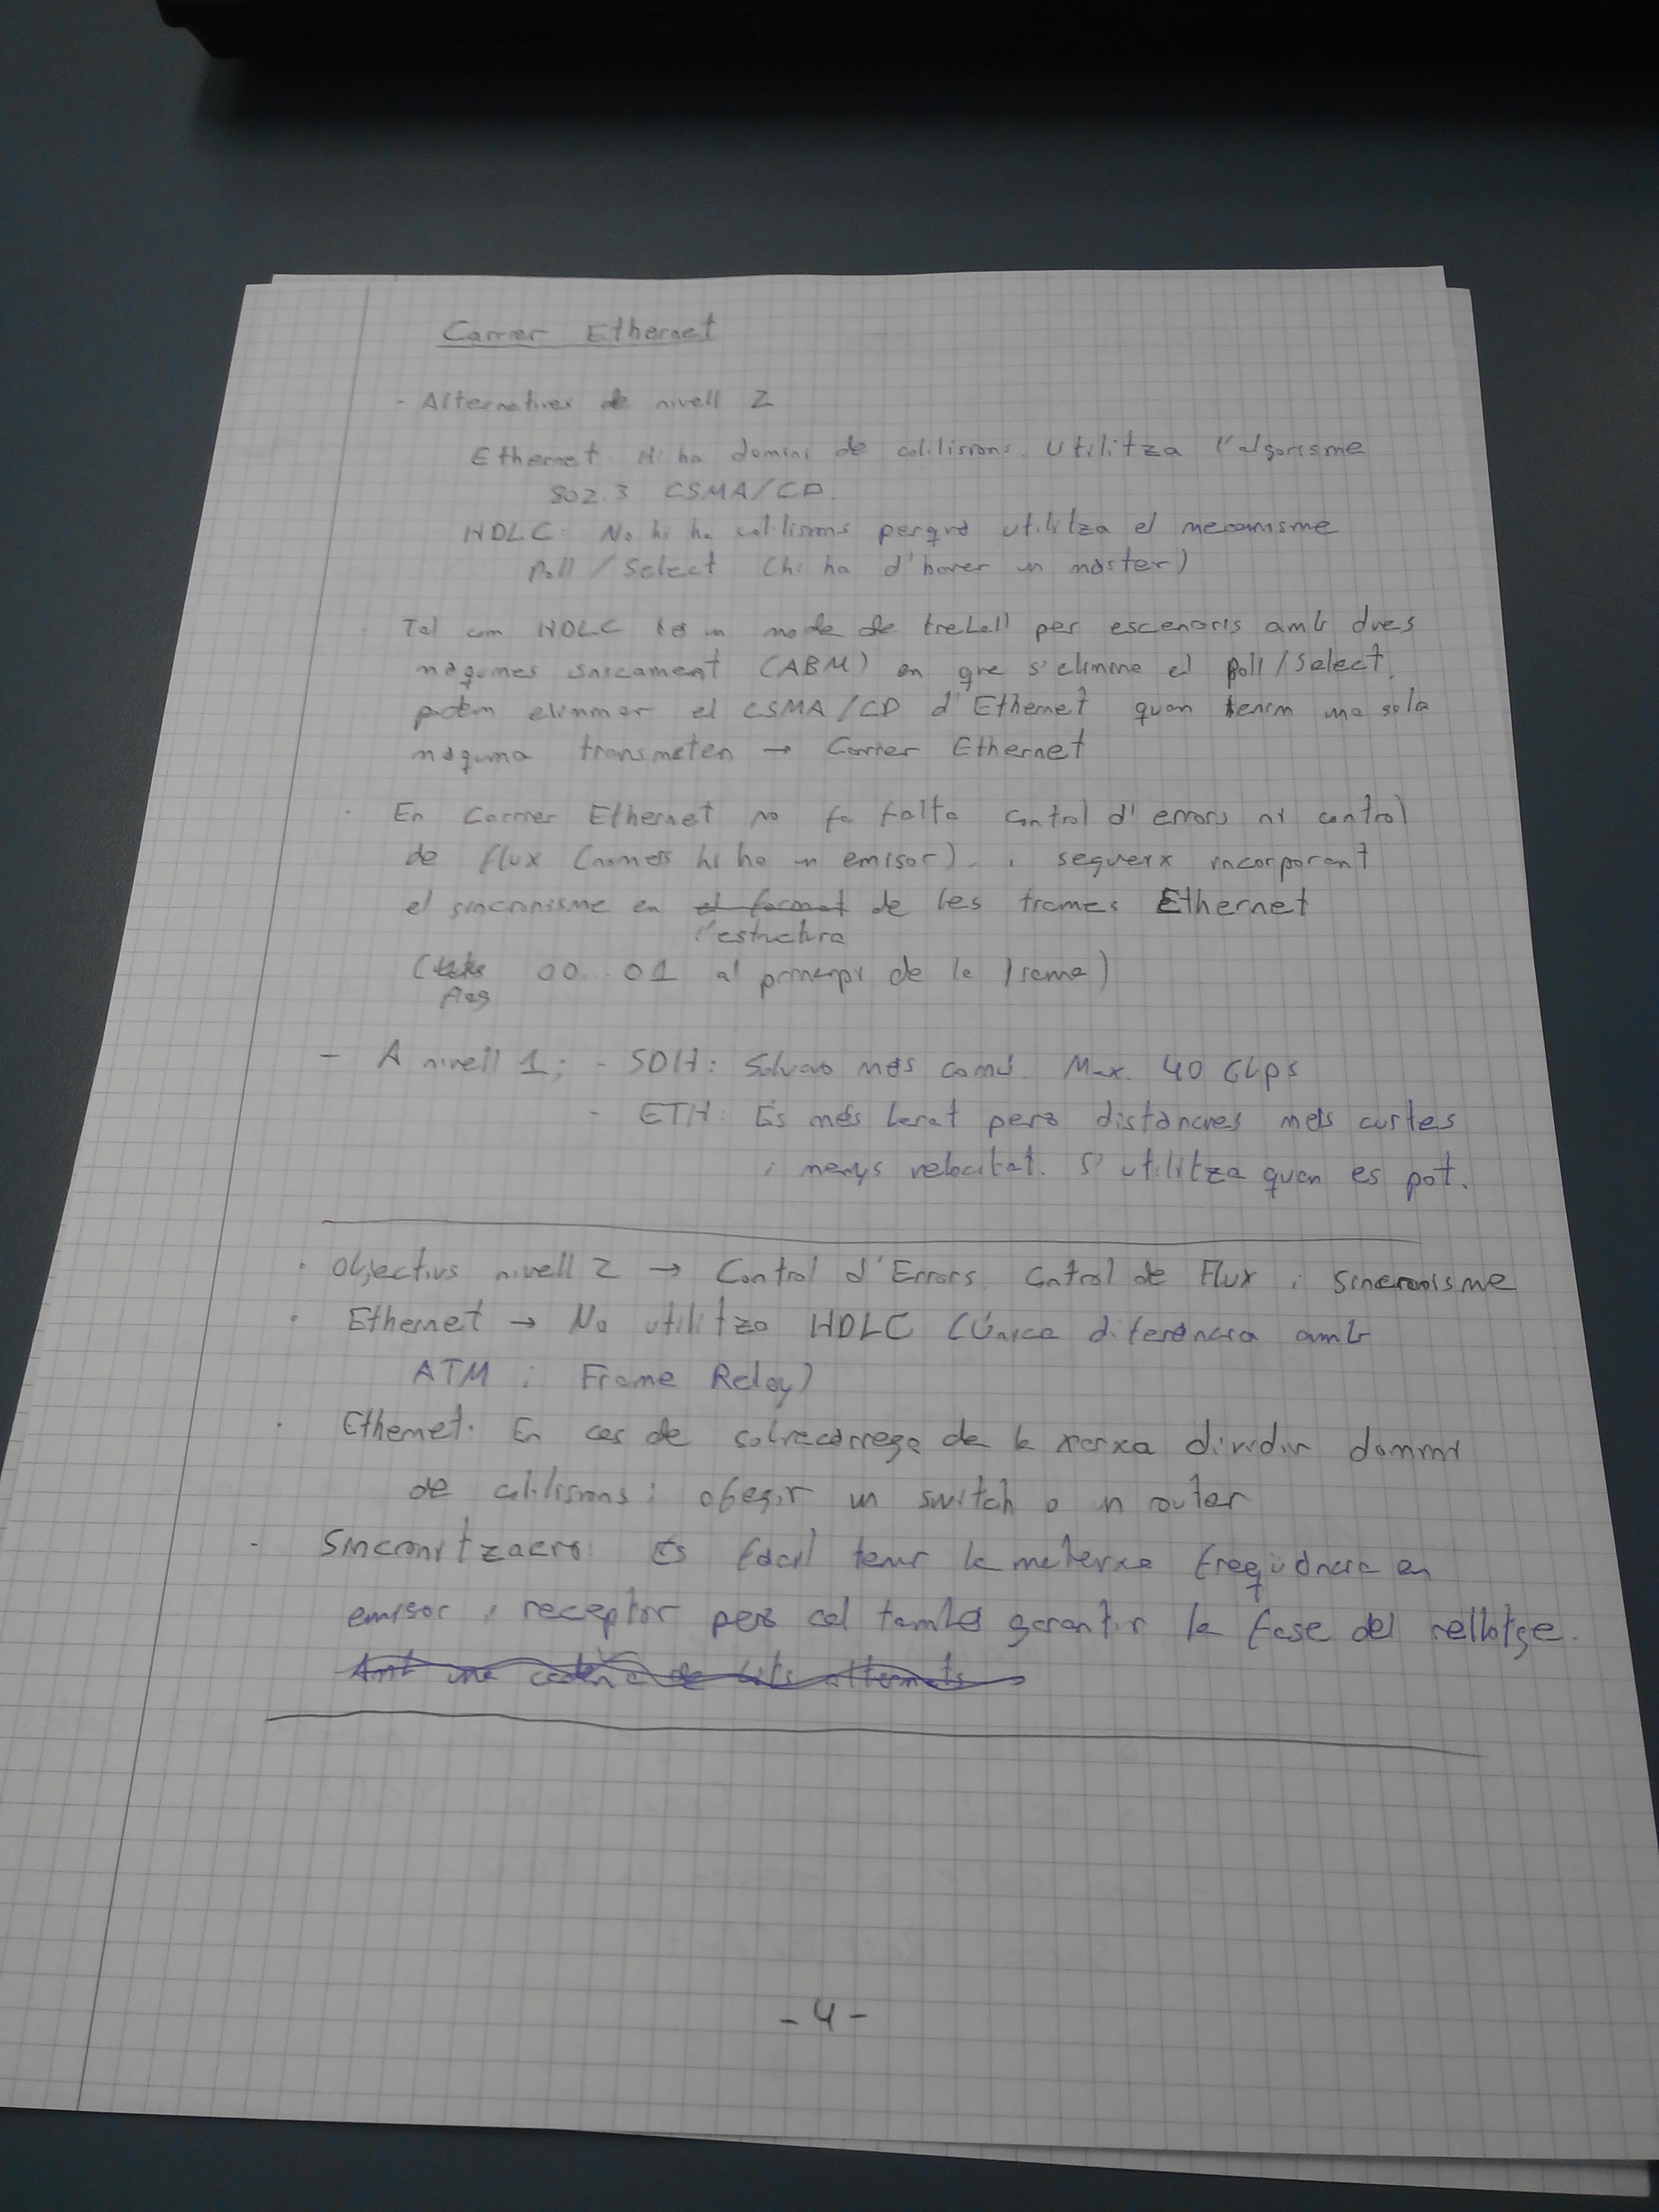 Carrier Ethernet
- Alternatives de nivell 2
Ethernet: Hi ha domini de col·lisions. Utilitza l'algorisme
802.3 CSMA/CD.
HDLC: No hi ha col·lisions perquè utilitza el mecanisme
Poll / Select (hi ha d'haver un màster)
· Tal com HDLC té un mode de treball per escenaris amb dues
màquines únicament (ABM) en que s'elimina el Poll/Select,
podem eliminar el CSMA/CD d'Ethernet quan tenim una sola
màquina transmeten → Carrier Ethernet
· En Carrier Ethernet no fa falta control d'errors ni control
de flux (només hi ha un emisor), i segueix incorporant
el sincronisme en el format de les trames Ethernet
l'estructura
( 00...01 al principi de la trama)
flag
- A nivell 1: - SDH: Solució més comú. Max. 40 Gbps
- ETH: És més barat però distàncies més curtes
i menys velocitat. S'utilitza quan es pot.
· Objectius nivell 2 → Control d'Errors, Control de Flux i Sincronisme
· Ethernet → No utilitza HDLC (Única diferència amb
ATM i Frame Relay)
· Ethernet: En cas de sobrecàrrega de la xarxa dividir domini
de col·lisions i afegir un switch o un router
- Sincronització: És fàcil tenir la mateixa freqüència en
emisor i receptor però cal també garantir la fase del rellotge.
Amb una cadena de bits alternats
- 4 -